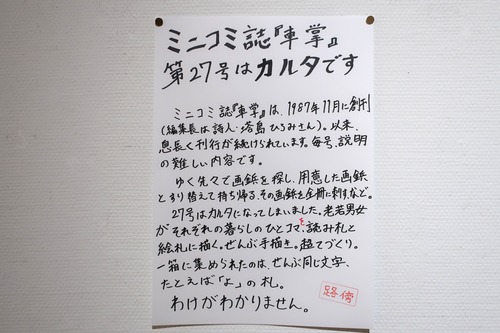 ミニコミ誌『車掌』
第27号はカルタです
ミニコミ誌『車掌』は、1987年11月に創刊
(編集長は詩人・塔島ひろみさん)。以来、
息長く刊行が続けられています。毎号、説明
の難しい内容です。
ゆく先々で画鋲を探し、用意した画鋲
とすり替えて持ち帰る。その画鋲を全冊に刺す、など。
27号はカルタになってしまいました。老若男女
がそれぞれの暮らしのひとコマを、読み札と
絵札に描く。ぜんぶ手描き。超てづくり。
一箱に集められたのは、ぜんぶ同じ文字、
たとえば「よ」の札。
わけがわかりません。
路傍